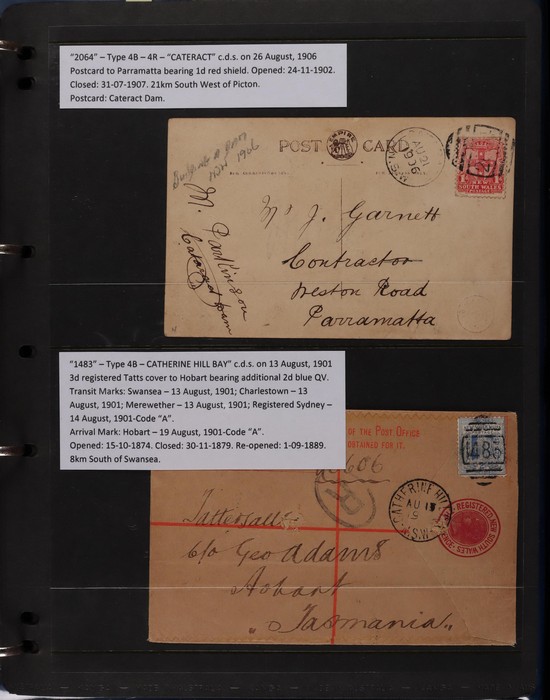 "2064" – Type 4B – 4R – "CATERACT" c.d.s. on 26 August, 1906
Postcard to Parramatta bearing 1d red shield. Opened: 24-11-1902.
Closed: 31-07-1907. 21km South West of Picton.
Postcard: Cateract Dam.
POST CARD
EMPIRE
AU 26
1906
SOUTH WALES
1906
M. Parkinson
Cataract Dam
Mr J. Garnett
Contractor
Weston Road
Parramatta
"1483" – Type 4B – CATHERINE HILL BAY" c.d.s. on 13 August, 1901
3d registered Tatts cover to Hobart bearing additional 2d blue QV.
Transit Marks: Swansea – 13 August, 1901; Charlestown – 13
August, 1901; Merewether – 13 August, 1901; Registered Sydney –
14 August, 1901-Code "A".
Arrival Mark: Hobart – 19 August, 1901-Code "A".
Opened: 15-10-1874. Closed: 30-11-1879. Re-opened: 1-09-1889.
8km South of Swansea.
OF THE POST OFFICE
OBTAINED FOR IT.
606
R
CATHERINE HILL
AU 13
N.S.W
REGISTERED NEW SOUTH WALES
Tattersalls
c/o Geo Adams
Hobart
Tasmania